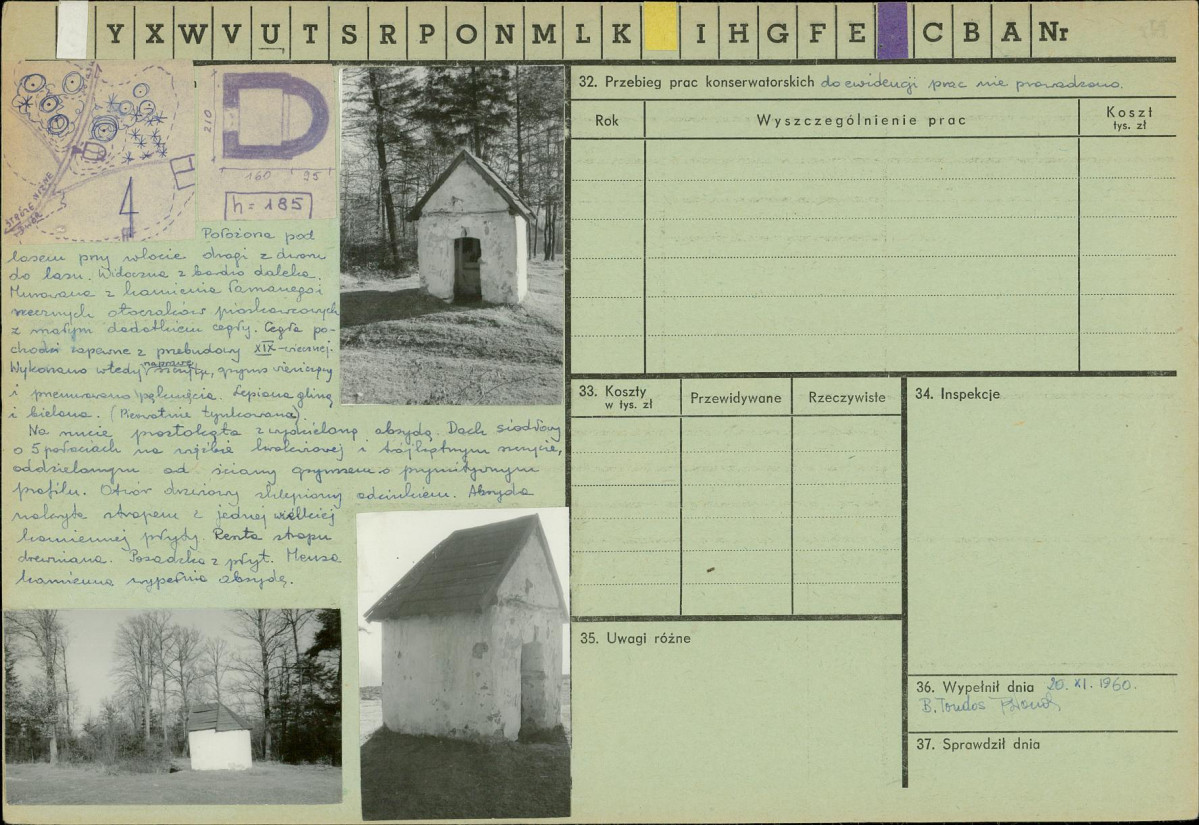 Y X W V U T S R P O N M L K I H G F E C B A Nr
210
160 95
h = 185
Położona pod
lasem przy wlocie drogi z dworu
do lasu. Widoczna z bardzo daleka.
Murowana z kamienia łamanego i
rzecznych otoczaków piaskowcowych
z małym dodatkiem cegły. Cegła po-
chodzi zapewne z przebudowy XIX-wiecznej.
Wykonano wtedy naprawę szczytu, gzyms wieńczący
i przemurowano pęknięcia. Lepiona gliną
i bielona. (Pierwotnie tynkowana).
Na rzucie prostokąta z wydzieloną absydą. Dach siodłowy
o 5 połaciach na więźbie krokwiowej i trójkątnym szczycie,
oddzielonym od ściany gzymsem o prymitywnym
profilu. Otwór drzwiowy sklepiony odcinkiem. Absyda
nakryta stropem z jednej wielkiej
kamiennej płyty. Reszta stropu
drewniana. Posadzka z płyt. Mensa
kamienna wypełnia absydę.
32. Przebieg prac konserwatorskich do ewidencji prac nie prowadzono.
Rok Wyszczególnienie prac Koszt
tys. zł
33. Koszty
w tys. zł Przewidywane Rzeczywiste
34. Inspekcje
35. Uwagi różne
36. Wypełnił dnia 20. XI. 1960.
B. Tondos
37. Sprawdził dnia